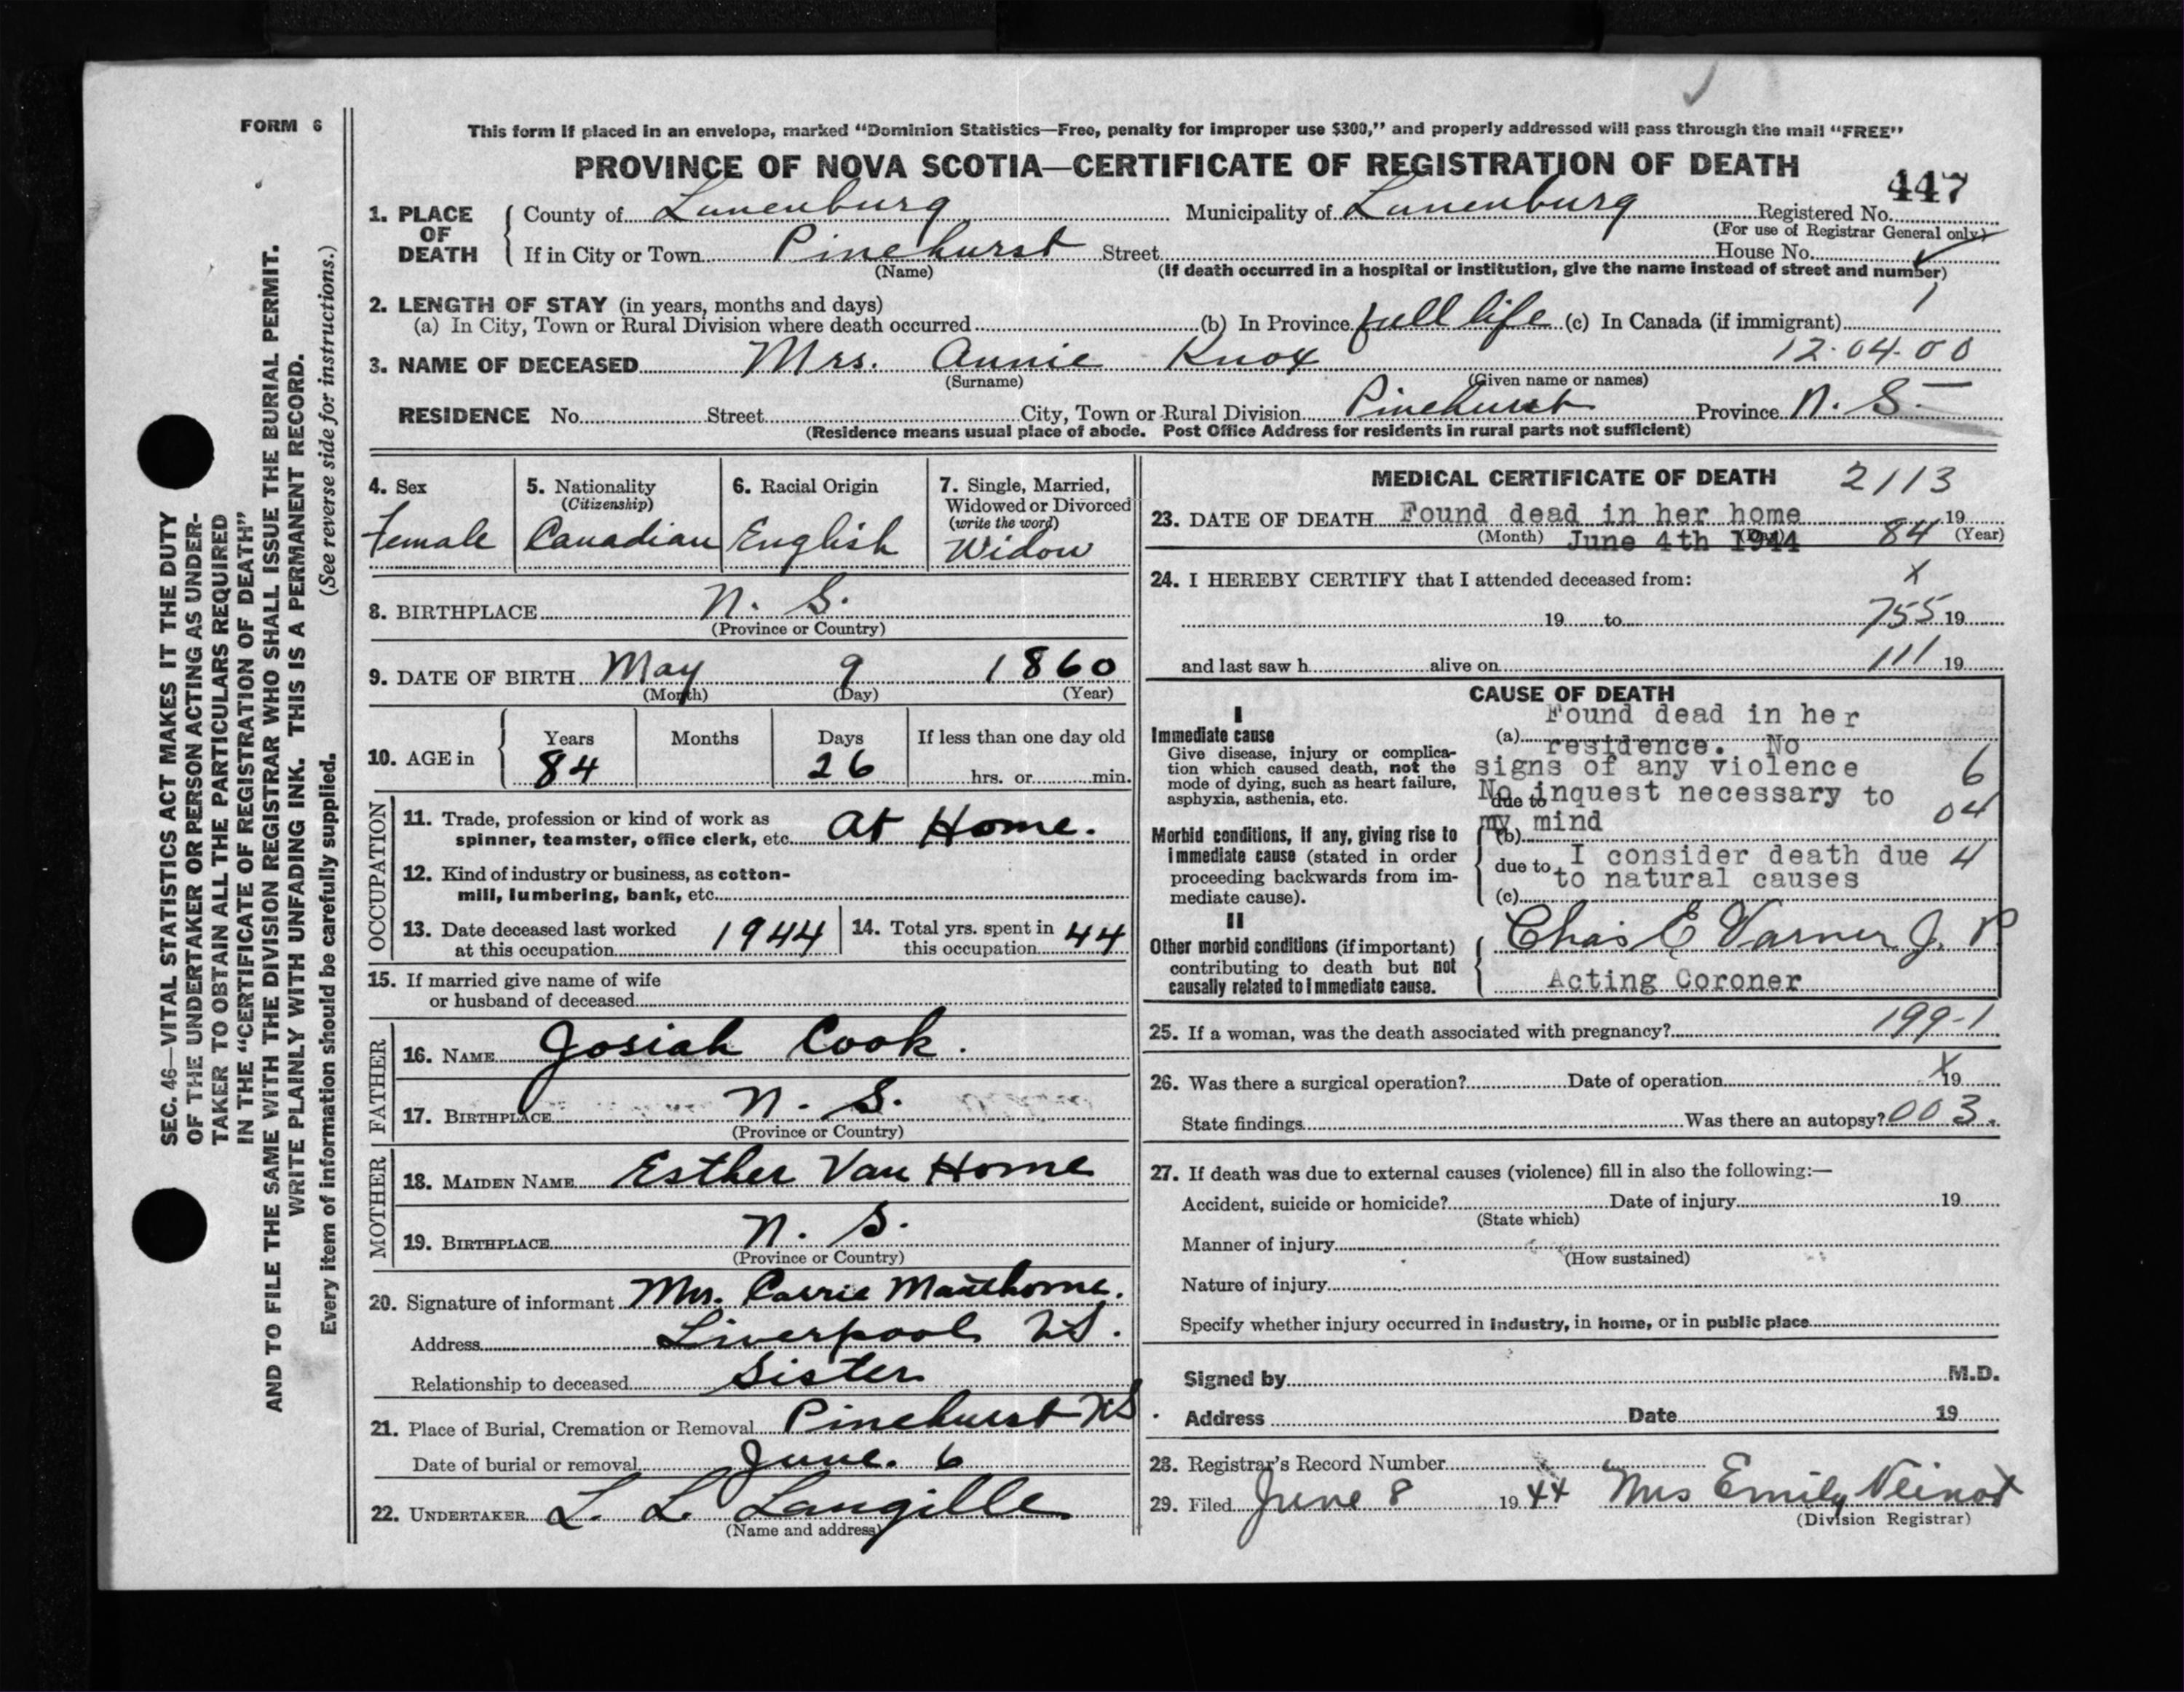 FORM 6
This form if placed in an envelope, marked “Dominion Statistics—Free, penalty for improper use $300,” and properly addressed will pass through the mail “FREE”
PROVINCE OF NOVA SCOTIA—CERTIFICATE OF REGISTRATION OF DEATH
447
1. PLACE OF DEATH
County of Lunenburg Municipality of Lunenburg Registered No.
(For use of Registrar General only)
If in City or Town Pinehurst Street House No.
(Name) (If death occurred in a hospital or institution, give the name instead of street and number)
2. LENGTH OF STAY (in years, months and days) 1
(a) In City, Town or Rural Division where death occurred (b) In Province full life (c) In Canada (if immigrant)
3. NAME OF DECEASED Mrs. Annie Knox 12.04.00
(Surname) (Given name or names)
RESIDENCE No. Street City, Town or Rural Division Pinehurst Province N. S.
(Residence means usual place of abode. Post Office Address for residents in rural parts not sufficient)
4. Sex
Female
5. Nationality
(Citizenship)
Canadian
6. Racial Origin
English
7. Single, Married, Widowed or Divorced
(write the word)
Widow
8. BIRTHPLACE N. S.
(Province or Country)
9. DATE OF BIRTH May 9 1860
(Month) (Day) (Year)
10. AGE in
Years Months Days If less than one day old
84 26 hrs. or min.
OCCUPATION
11. Trade, profession or kind of work as
spinner, teamster, office clerk, etc. At Home.
12. Kind of industry or business, as cotton-
mill, lumbering, bank, etc.
13. Date deceased last worked
at this occupation 1944
14. Total yrs. spent in
this occupation 44
15. If married give name of wife
or husband of deceased
FATHER
16. NAME Josiah Cook.
17. BIRTHPLACE N. S.
(Province or Country)
MOTHER
18. MAIDEN NAME Esther Van Horne
19. BIRTHPLACE N. S.
(Province or Country)
20. Signature of informant Mrs. Carrie
Address Liverpool NS.
Relationship to deceased Sister
21. Place of Burial, Cremation or Removal Pinehurst NS.
Date of burial or removal June. 6
22. UNDERTAKER L. L. Langille
(Name and address)
MEDICAL CERTIFICATE OF DEATH 2113
23. DATE OF DEATH Found dead in her home 19
(Month) (Day) (Year)
June 4th 1944 84
24. I HEREBY CERTIFY that I attended deceased from: x
19 to 755 19
and last saw h alive on 111 19
CAUSE OF DEATH
I
Immediate cause
Give disease, injury or complica-
tion which caused death, not the
mode of dying, such as heart failure,
asphyxia, asthenia, etc.
Morbid conditions, if any, giving rise to
immediate cause (stated in order
proceeding backwards from im-
mediate cause).
II
Other morbid conditions (if important)
contributing to death but not
causally related to immediate cause.
Found dead in her
(a) residence. No
signs of any violence 6
due to
No inquest necessary to
my mind 04
(b)
due to I consider death due 4
to natural causes
(c)
Chas E Varner J. P
Acting Coroner
25. If a woman, was the death associated with pregnancy? 199-1
26. Was there a surgical operation? Date of operation X 19
State findings Was there an autopsy? 003.
27. If death was due to external causes (violence) fill in also the following:—
Accident, suicide or homicide? Date of injury 19
(State which)
Manner of injury
(How sustained)
Nature of injury
Specify whether injury occurred in industry, in home, or in public place
Signed by M.D.
Address Date 19
28. Registrar's Record Number
29. Filed June 8 1944 Mrs Emily Veinot
(Division Registrar)
SEC. 46—VITAL STATISTICS ACT MAKES IT THE DUTY
OF THE UNDERTAKER OR PERSON ACTING AS UNDER-
TAKER TO OBTAIN ALL THE PARTICULARS REQUIRED
IN THE “CERTIFICATE OF REGISTRATION OF DEATH”
AND TO FILE THE SAME WITH THE DIVISION REGISTRAR WHO SHALL ISSUE THE BURIAL PERMIT.
WRITE PLAINLY WITH UNFADING INK. THIS IS A PERMANENT RECORD.
Every item of information should be carefully supplied. (See reverse side for instructions.)